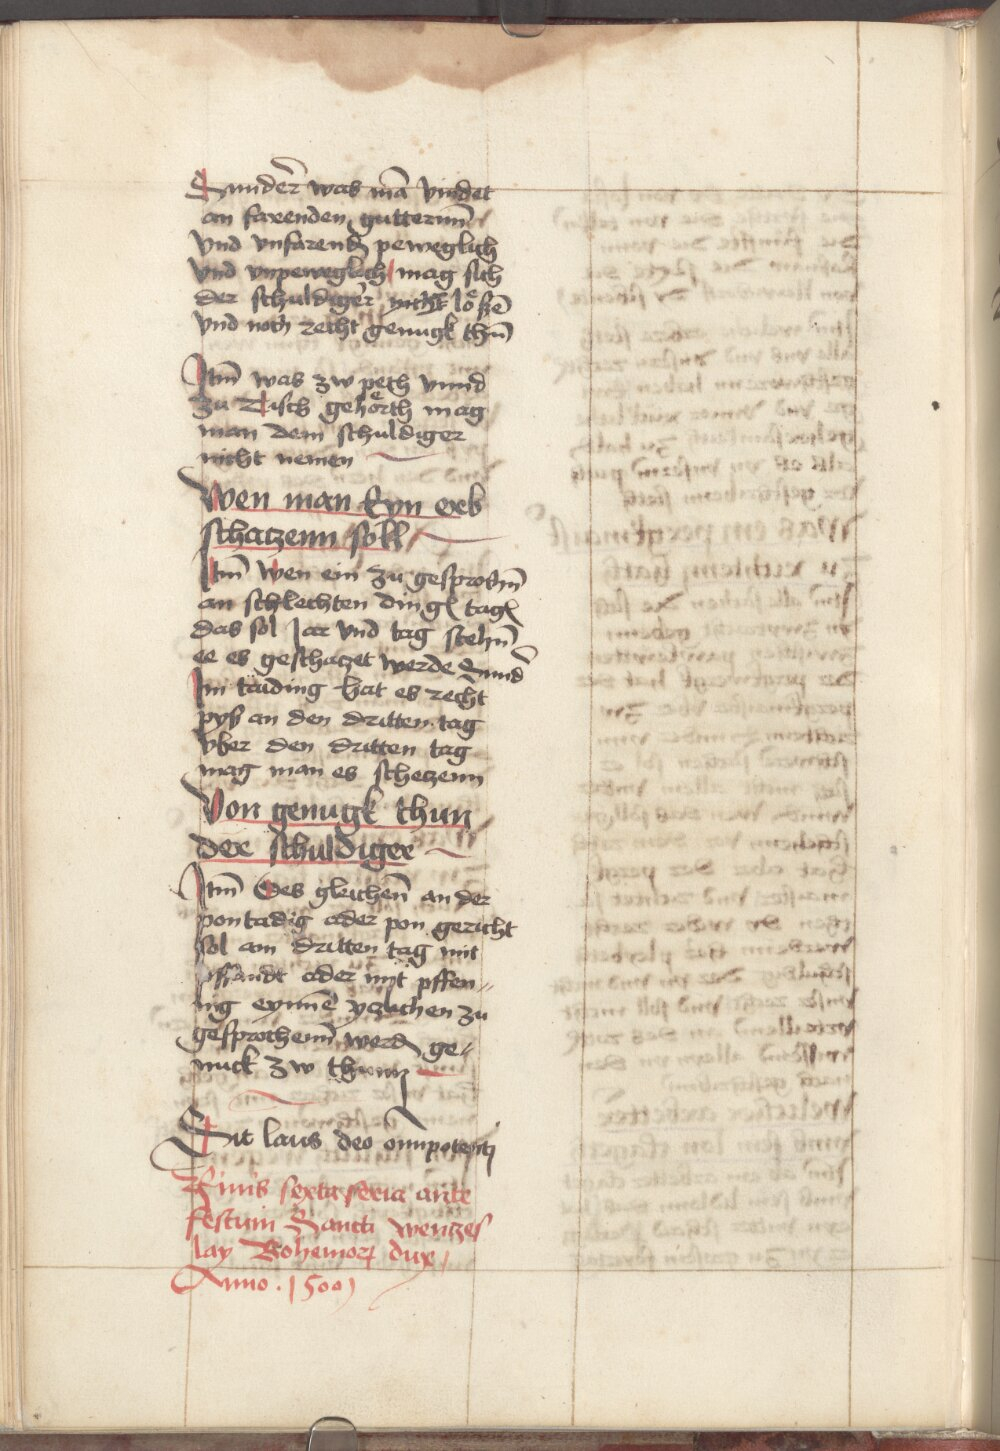 Sunder was mā vindet
an farenden gutternn
vnd vnfarend peweglich
vnd vnpeweglich mag sich
der schuldiger nicht lößē
vnd noth recht genugk thū
Itm̄ was zw peth vnnd
zu Tisch gehorth mag
man dem schuldiger
nicht nemen
Wen man Eyn erb
schatzenn soll
Itm̄ Wen ein zu gesprochn̄
an schlechten ding tag
das sol Jar vnd tag stehn̄
ee es geschatzet werde Sund
Im taiding hat es recht
pys an den dritten tag
vber den dritten tag
mag man es schetzenn
Von genugk thun
der schuldiger
Itm̄ Des gleichen̄ an der
pontadig ader pon gericht
sol am dritten tag mit
pffandt ader mit pffen-
nig eynnē yzlichen zu
gesprochenn̄ werd ge-
nuck zw thunn
Sit laus deo omnipotenti
Finis sexta feria ante
festum Sancti wentzes
lay Bohemor dux
Anno . 1500